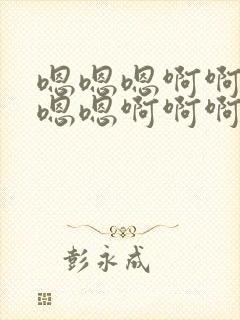 嗯嗯嗯啊啊
嗯嗯啊啊啊
彭永成